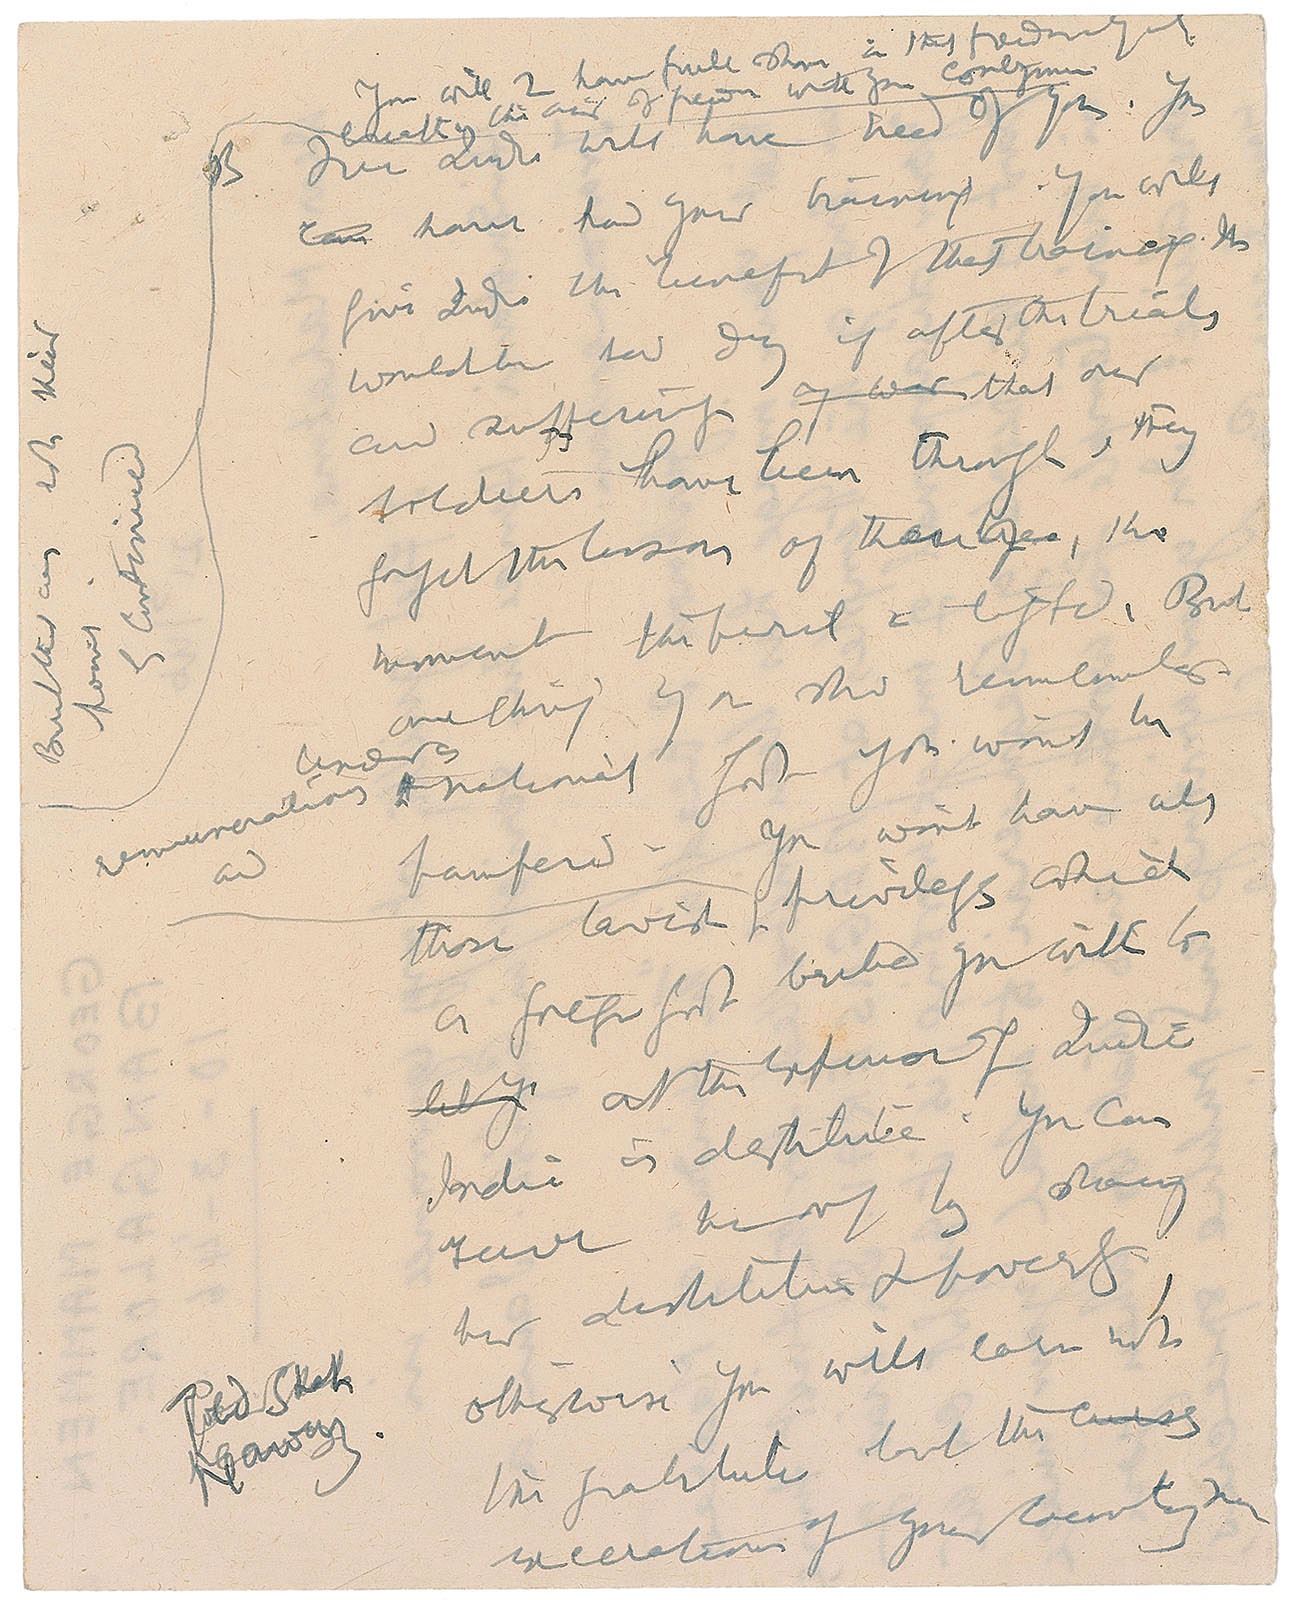 You will have full share in that freedom & you will
breathe the air of freedom with your countrymen
B Free India will have need of you. You
can have had your training. You will
give India the benefit of that training. It
would be sad day if after the trials
and sufferings of war that our
soldiers have been through, they
forget the lesson of the
moment the peril is lifted. But
one thing you shd remember.
Under a
remuneration national Govt you won't be
and pampered. You won't have all
those lavish privileges which
a foreign Govt bribed you with to
at the expense of India
India is destitute. You can
serve her only by sharing
her destitution & poverty,
otherwise you will earn not
the gratitude but the curses
execrations of your countrymen
But they are not their
point
G Continued